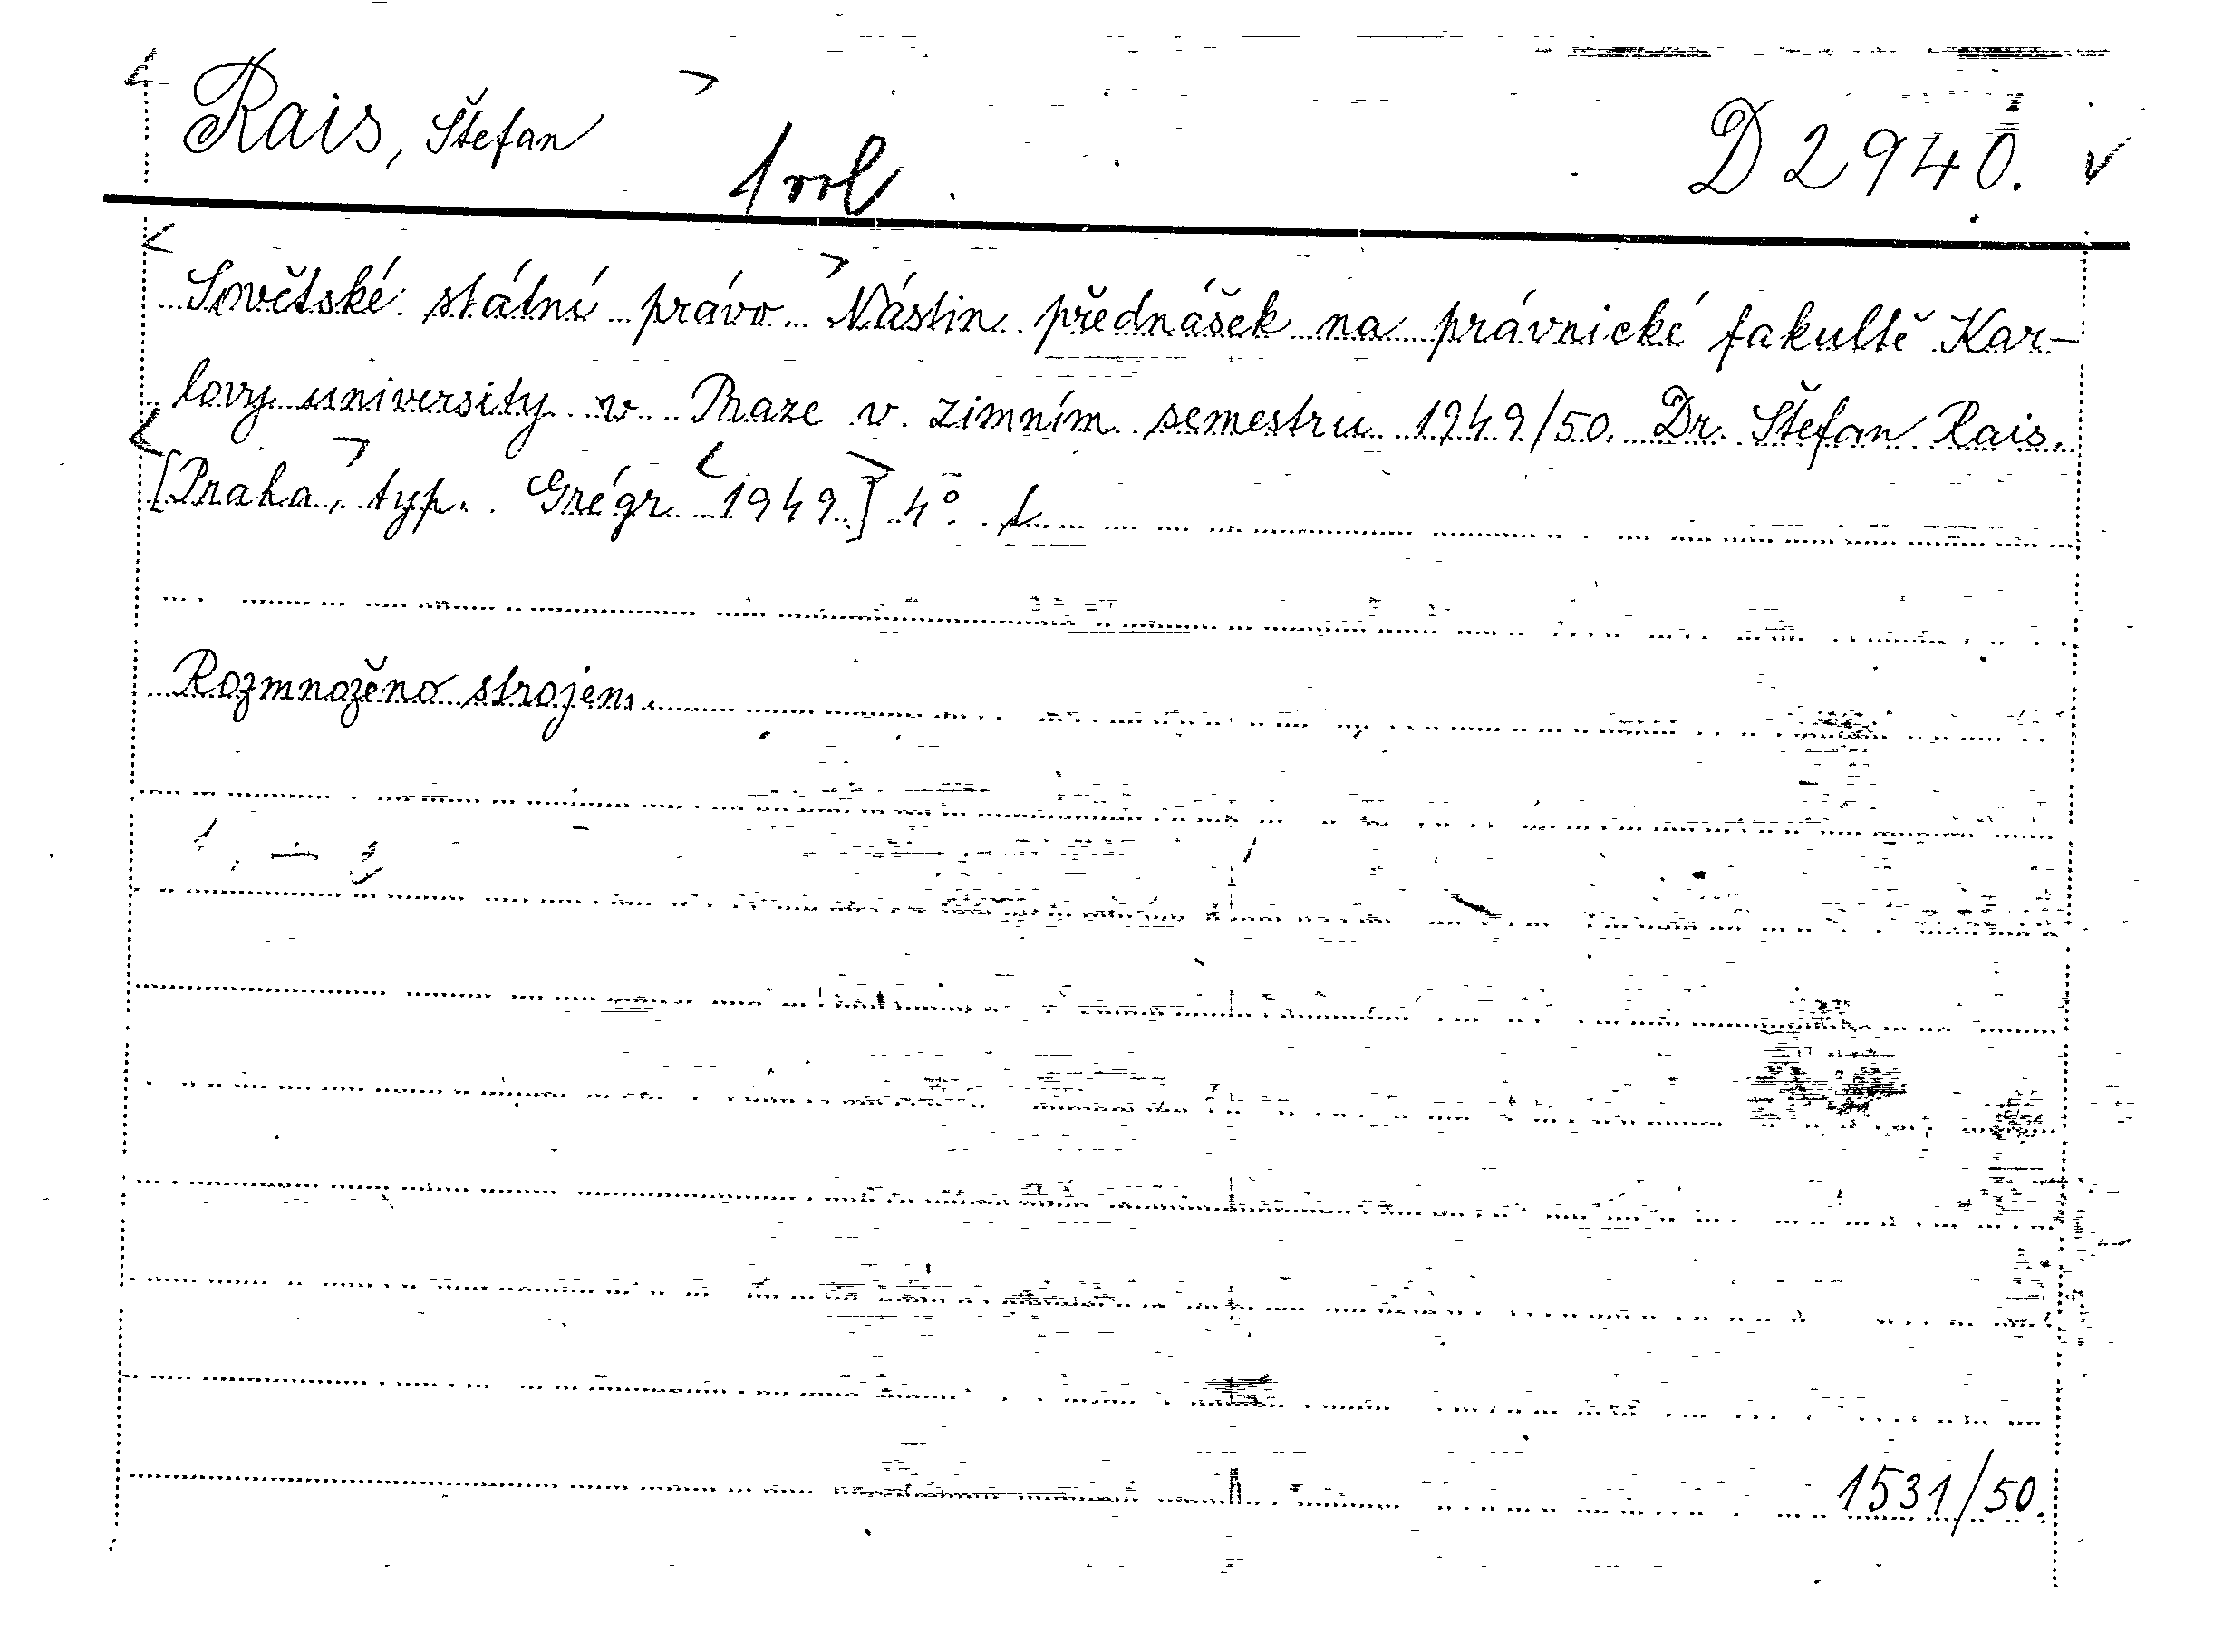 Rais, Štefan
1 vol
D 2940.
Sovětské státní právo Nástin přednášek na právnické fakultě Kar-
lovy university v Praze v zimním semestru 1949/50. Dr. Štefan Rais.
[Praha, typ. Grégr 1949.] 4°.
Rozmnoženo strojem.
1531/50.